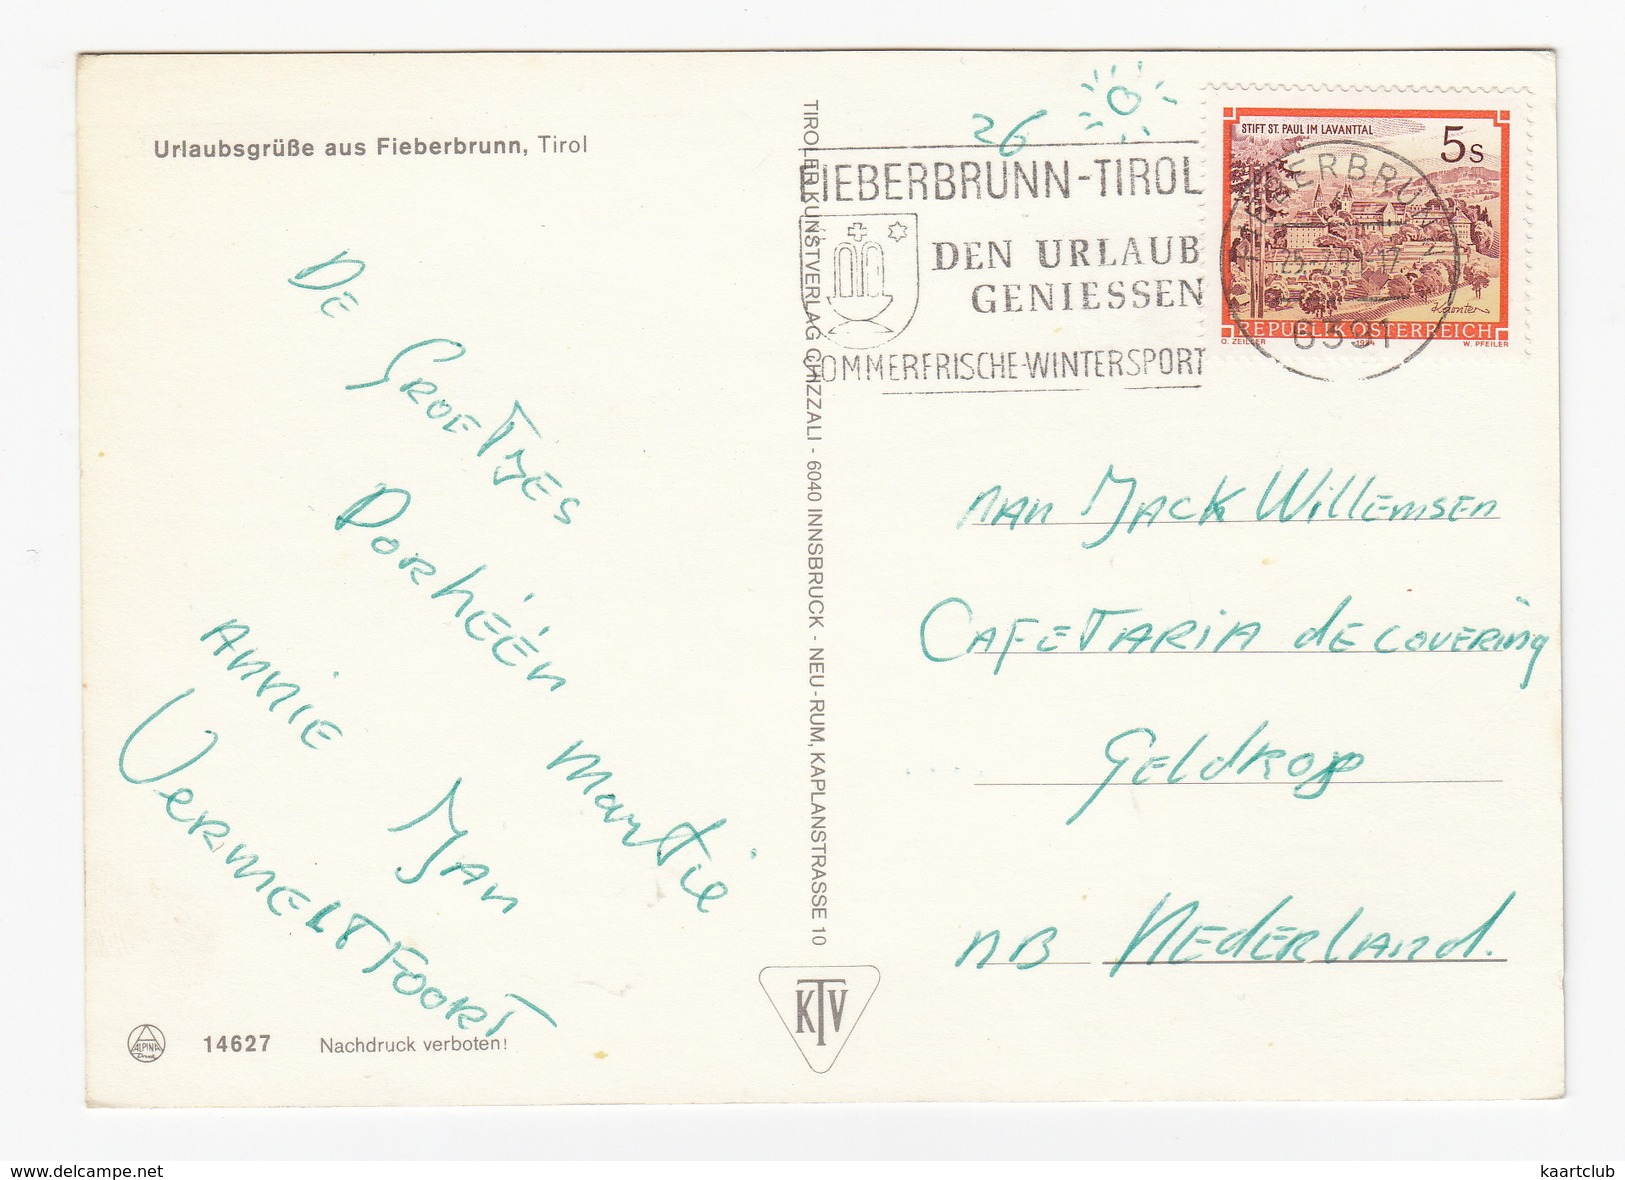 Urlaubsgrüße aus Fieberbrunn, Tirol
DE
GROETJES
DORHÉÉN MARTIE
ANNIE JAN
VERMELTFOORT
14627 Nachdruck verboten!
ALPINA
TIROLER KUNSTVERLAG CHIZZALI - 6040 INNSBRUCK - NEU-RUM, KAPLANSTRASSE 10
KTV
26
FIEBERBRUNN-TIROL
DEN URLAUB
GENIESSEN
SOMMERFRISCHE-WINTERSPORT
STIFT ST. PAUL IM LAVANTTAL
5s
REPUBLIK ÖSTERREICH
O. ZEILLER 1984 W. PFEILER
Kärnten
FIEBERBRUNN
6391
AAN JACK WILLEMSEN
CAFETARIA DE COVERING
GELDROP
NB NEDERLAND.
www.delcampe.net
kaartclub